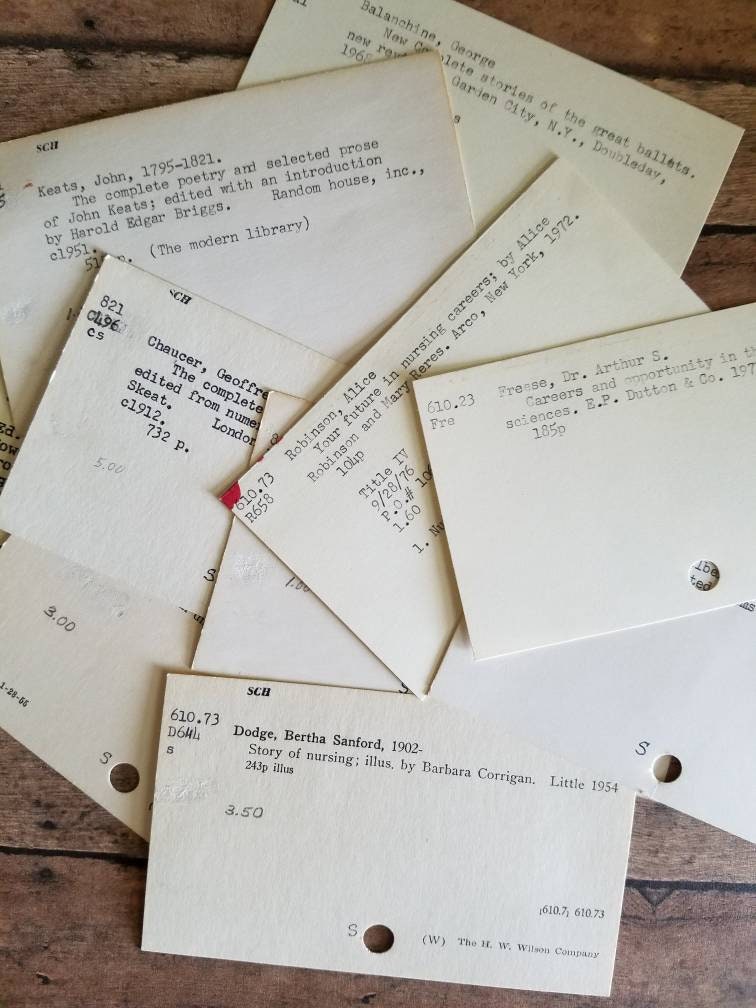 Balanchine, George
New Complete stories of the great ballets.
new
Garden City, N.Y., Doubleday,
SCH
Keats, John, 1795-1821.
The complete poetry and selected prose
of John Keats; edited with an introduction
by Harold Edgar Briggs. Random house, inc.,
c1951.
(The modern library)
SCH
821
C496
cs
Chaucer,
The complete
edited from
Skeat. London
c1912.
732 p.
5.00
S
610.73
R658
Robinson, Alice
Your future in nursing careers; by Alice
Robinson and Mary Reres. Arco, New York, 1972.
104p
Title IV
9/28/76
P.O.#
1.60
1.
610.23
Fre
Freese, Dr. Arthur S.
Careers and opportunity in
sciences. E.P. Dutton & Co.
185p
3.00
1-28-66
S
1.00
S
S
SCH
610.73
D644
s
Dodge, Bertha Sanford, 1902-
Story of nursing; illus. by Barbara Corrigan. Little 1954
243p illus
3.50
610.7; 610.73
S
(W) The H. W. Wilson Company